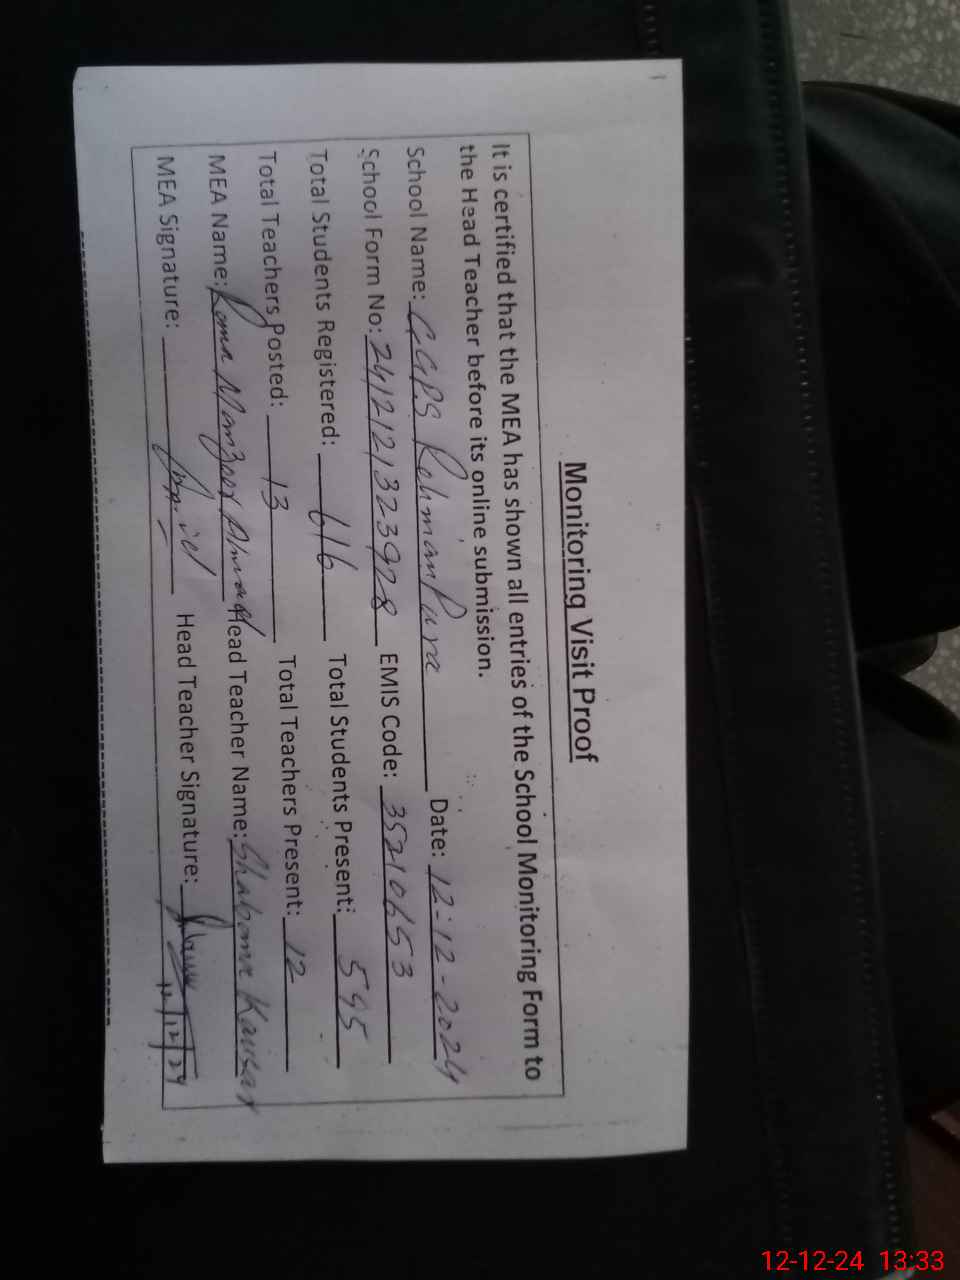 Monitoring Visit Proof
It is certified that the MEA has shown all entries of the School Monitoring Form to
the Head Teacher before its online submission.
School Name: GGPS RehmanPura Date: 12-12-2024
School Form No: 2412121323928 EMIS Code: 35210653
Total Students Registered: 616 Total Students Present: 595
Total Teachers Posted: 13 Total Teachers Present: 12
MEA Name: Roma Manzoor Ahmad Head Teacher Name: Shabana Kausar
MEA Signature: Head Teacher Signature:
12/12/24
12-12-24 13:33